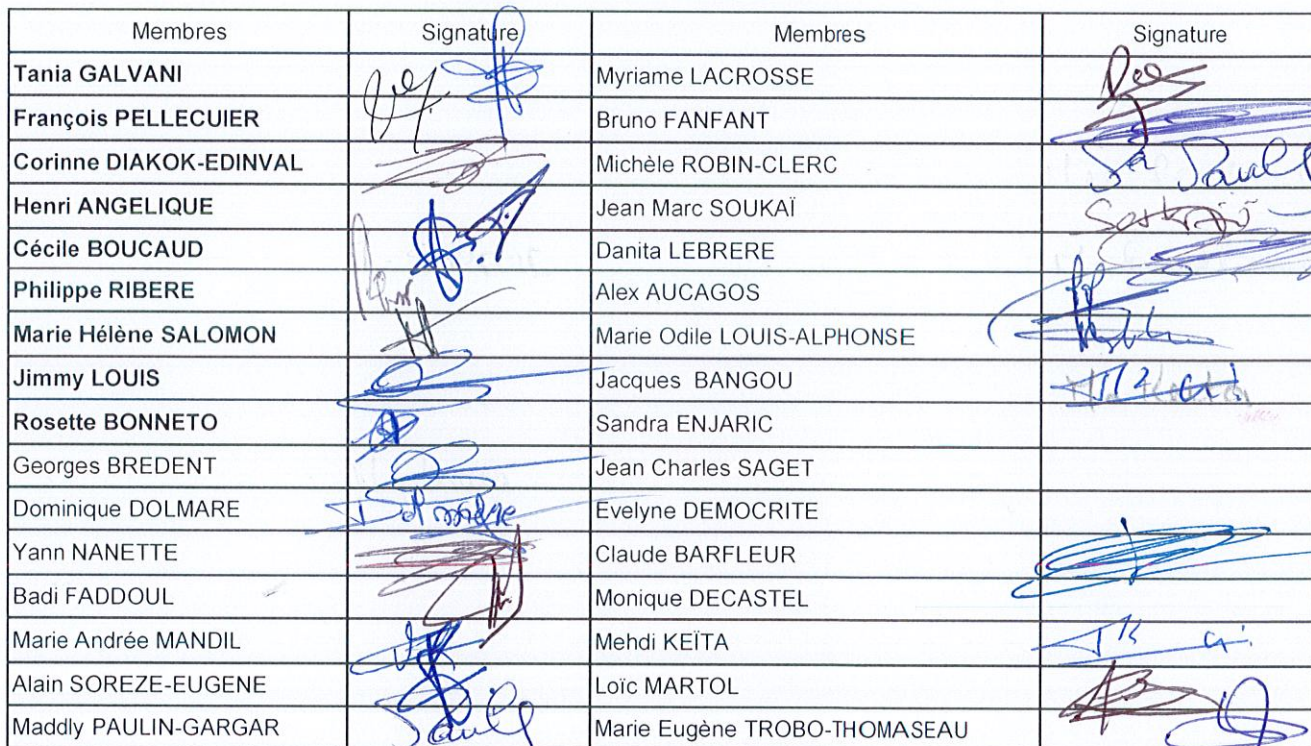 Membres Signature Membres Signature
Tania GALVANI Myriame LACROSSE
François PELLECUIER Bruno FANFANT
Corinne DIAKOK-EDINVAL Michèle ROBIN-CLERC
Henri ANGELIQUE Jean Marc SOUKAÏ
Cécile BOUCAUD Danita LEBRERE
Philippe RIBERE Alex AUCAGOS
Marie Hélène SALOMON Marie Odile LOUIS-ALPHONSE
Jimmy LOUIS Jacques BANGOU
Rosette BONNETO Sandra ENJARIC
Georges BREDENT Jean Charles SAGET
Dominique DOLMARE Evelyne DEMOCRITE
Yann NANETTE Claude BARFLEUR
Badi FADDOUL Monique DECASTEL
Marie Andrée MANDIL Mehdi KEÏTA
Alain SOREZE-EUGENE Loïc MARTOL
Maddly PAULIN-GARGAR Marie Eugène TROBO-THOMASEAU